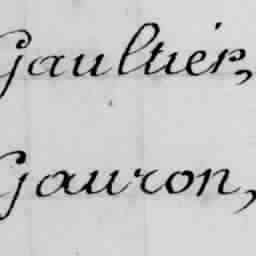 Gaultier,
Gauron,